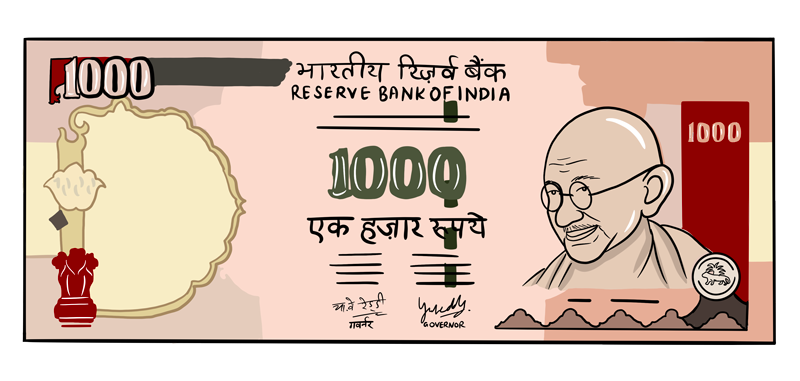 1000
भारतीय रिज़र्व बैंक
RESERVE BANK OF INDIA
1000
1000
एक हज़ार रूपये
गवर्नर
GOVERNOR